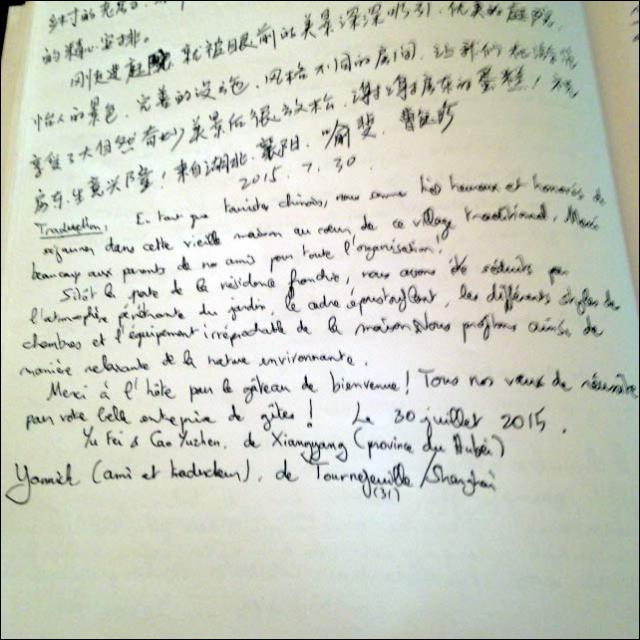 的精心安排。
刚走进庭院 就被眼前的美景深深吸引，优美的庭院，
怡人的景色，完善的设施，风格不同的房间，让我们在
享受了大自然奇妙美景后很放松，谢谢房东的蛋糕！祝
房东生意兴隆！来自湖北 襄阳. 喻斐
2015. 7. 30.
Traduction. En tant que touristes chinois, nous sommes très heureux et honorés de
séjourner dans cette vieille maison au cœur de ce village traditionnel. Merci
beaucoup aux parents de nos amis pour toute l'organisation!
Sitôt la porte de la résidence franchie, nous avons été séduits par
l'atmosphère du jardin, le cadre époustouflant, les différents styles de
chambres et l'équipement irréprochable de la maison. Nous profitons ainsi de
manière relaxante de la nature environnante.
Merci à l'hôte pour le gâteau de bienvenue! Tous nos vœux de réussite
pour votre belle entreprise de gîtes! Le 30 juillet 2015.
Yu Fei & Cao Yuzhen, de Xiangyang (province du Hubei)
Yannick (ami et traducteur), de Tournefeuille / Shanghai
(31)